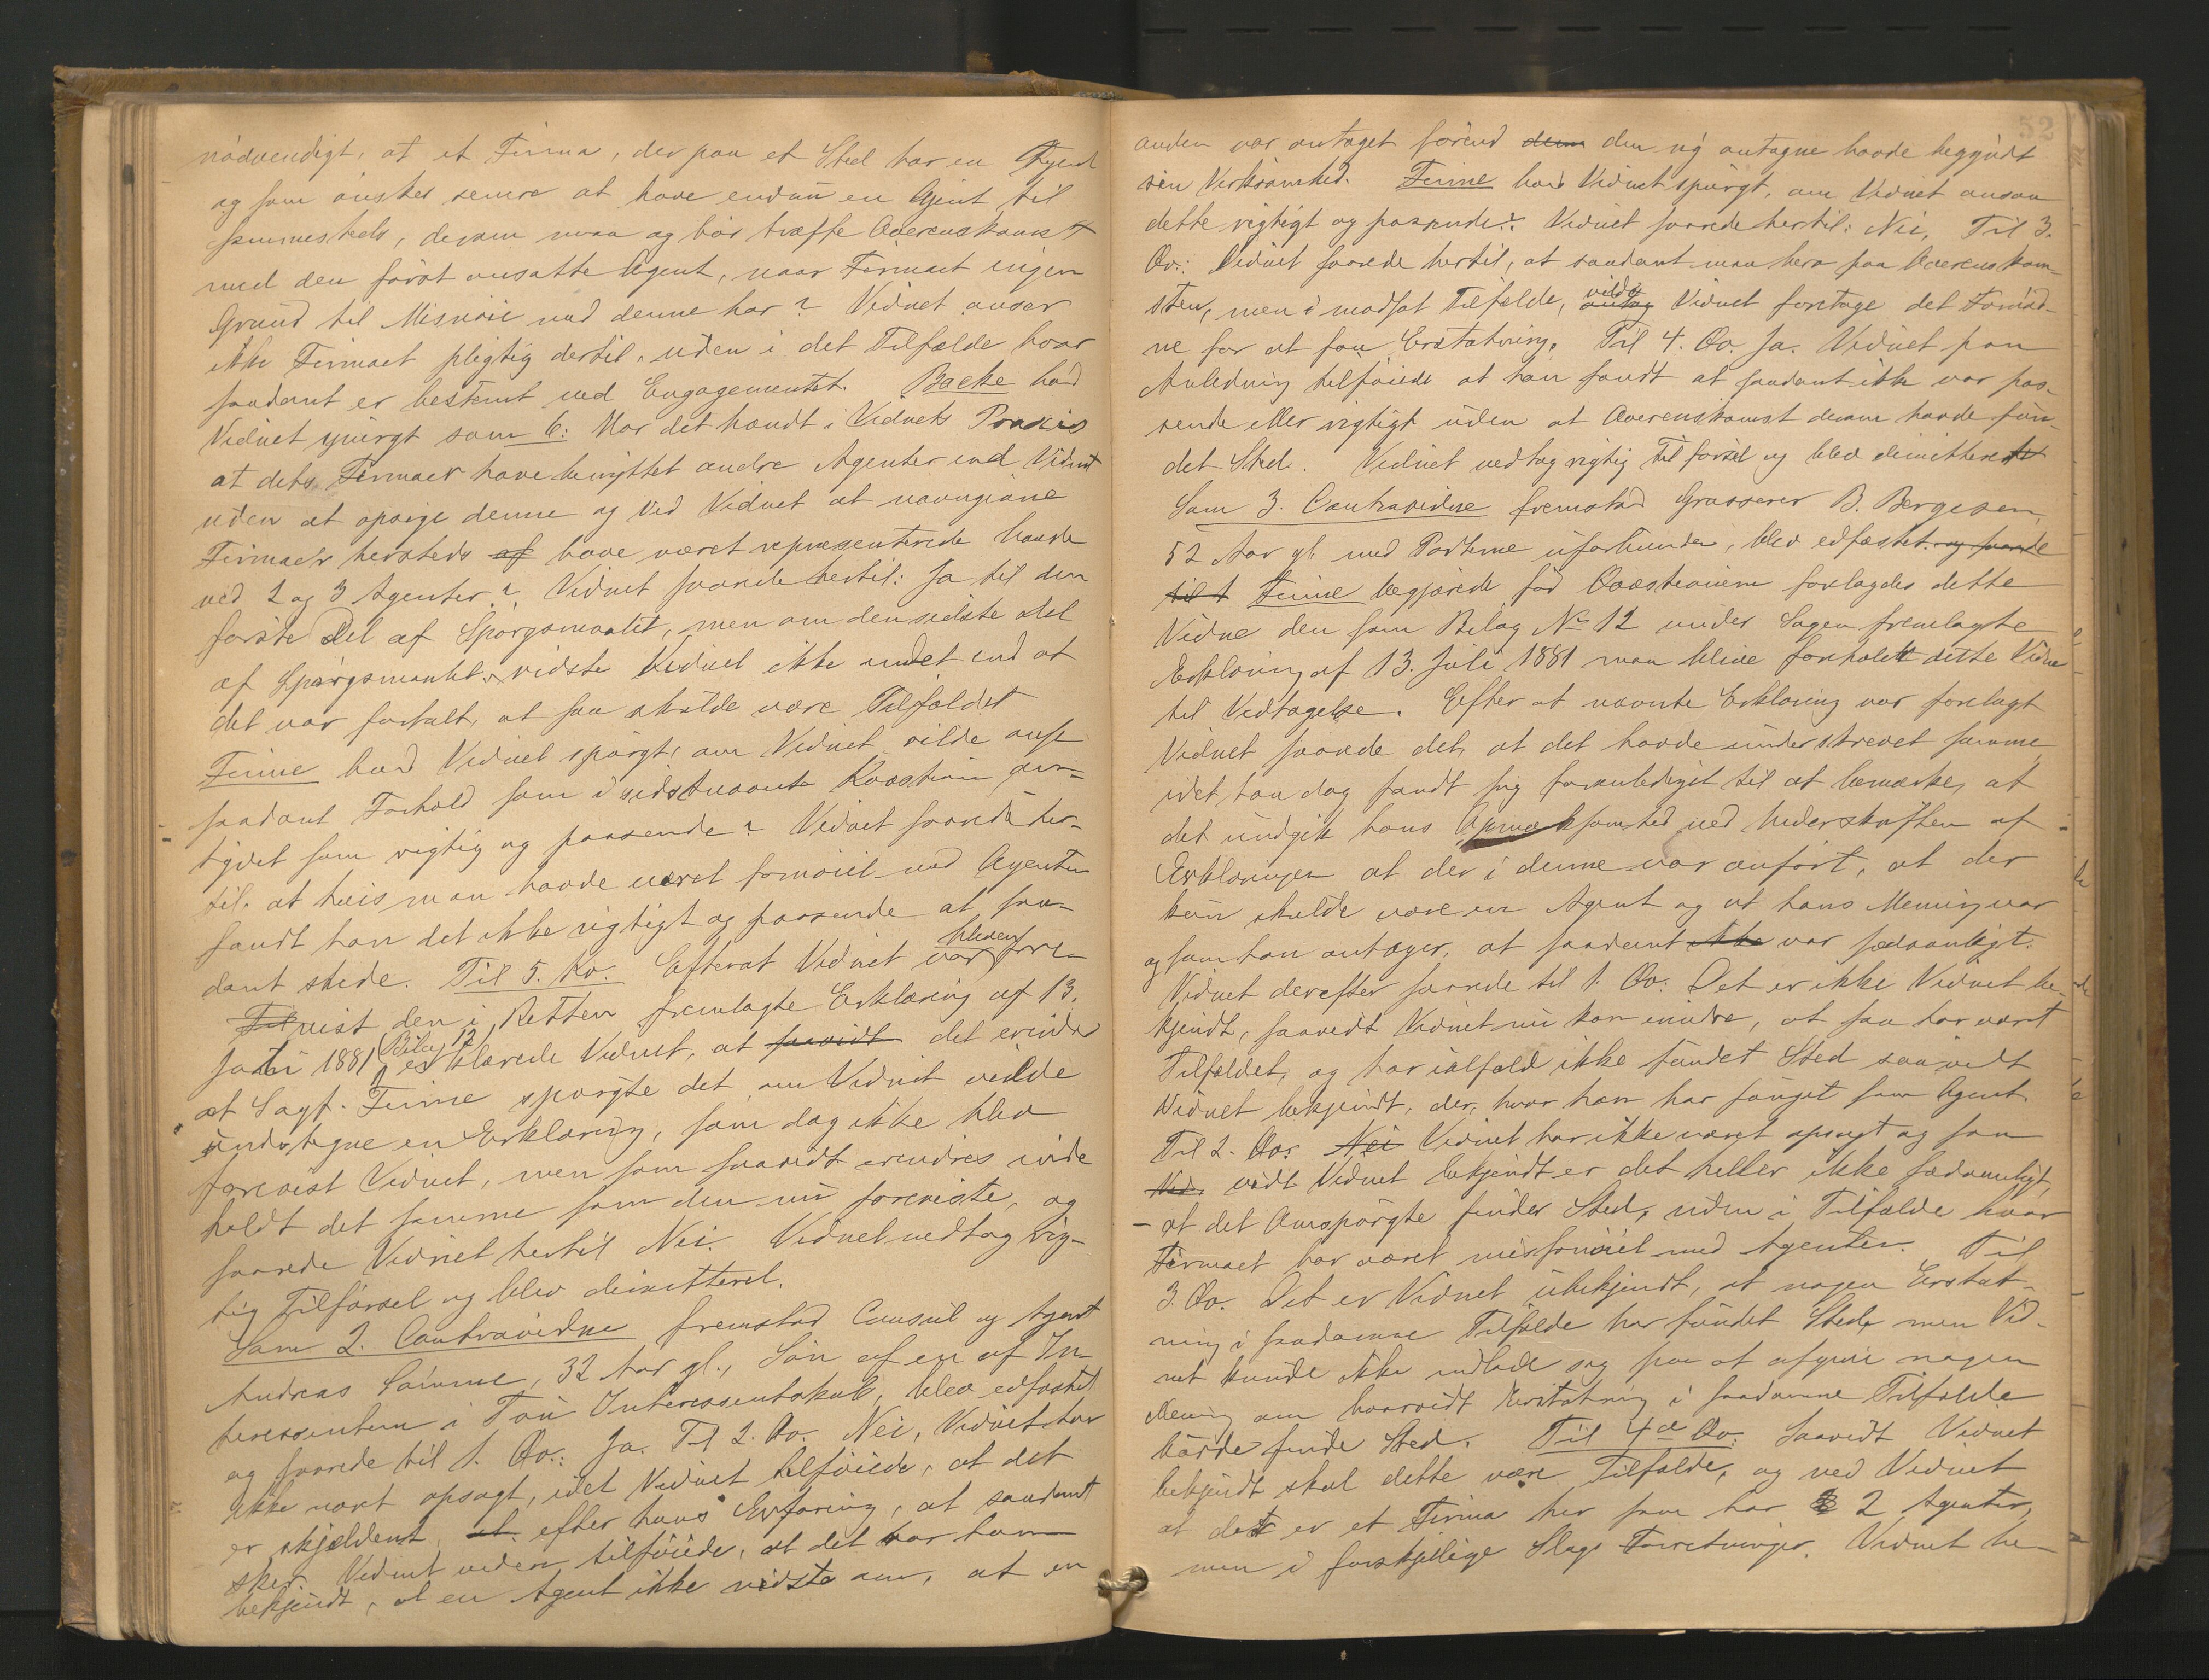 nödvendigt, at et Firma, der paa et Sted har en Agent
og som önsker senere at have endnu en Agent til
sammesteds, derom maa og bör træffe Overenskomst
med den först ansatte Agent, naar Firmaet ingen
Grund til Misnöie med denne har? Vidnet anser
ikke Firmaet pligtig dertil, uden i det Tilfælde hvor
saadant er bestemt ved Engagementet. Backe bad
Vidnet spurgt som 6: Har det hændt i Vidnets Praxis
at dets Firmaer have benyttet andre Agenter end Vidnet
uden at opsige denne og ved Vidnet at navngivne
Firmaer hersteds af have været repræsenterede baade
ved 2 og 3 Agenter? Vidnet svarede hertil: Ja til den
förste Del af Spörgsmaalet, men om den sidste Del
af Spörgsmaalet vidste Vidnet ikke andet end at
det var fortalt, at saa skulde være Tilfældet
Finne bad Vidnet spörgt, om Vidnet vilde anse
saadant Forhold som i sidstnævnte Kvæstion om-
tydet som rigtig og passende? Vidnet svarede her-
til, at hvis man havde været fornöiet med Agenten
fandt han det ikke rigtigt og passende at saa-
dant skede. Til 5. Kv. Efterat Vidnet var bleven fore-
Til vist den i Retten fremlagte Erklæring af 13.
Juli 1881 (Bilag 12) erklærede Vidnet, at saavidt det erindrer
at Sagf. Finne spörgte det om Vidnet vilde
undertegne en Erklæring, som dog ikke blev
forevist Vidnet, men som saavidt erindres inde
holdt det samme som den nu foreviste, og
svarede Vidnet hertil Nei. Vidnet vedtog rig-
tig Tilförsel og blev dimitteret.
Som 2. Contravidne fremstod Consul og Agent
Andreas Sömme, 32 Aar gl., Sön af en af In-
teressenterne i Tou Interessentskab, blev edfæstet
og svarede til 1. Qv.: Ja. Til 2. Qv. Nei, Vidnet har
ikke været opsagt, idet Vidnet tilföiede, at det
er skjældent, at efter hans Erfaring, at saadant
sker. Vidnet videre tilföiede, at det var ham
bekjendt, at en Agent ikke vidste om, at en
52
anden var antaget förend dem den ny antagne havde begyndt
sin Virksomhed. Finne bad Vidnet spurgt, om Vidnet ansaa
dette rigtigt og passende? Vidnet svarede hertil: Nei, Til 3.
Qv: Vidnet svarede hertil, at saadant maa bero paa Overenskom-
sten, men i modsat Tilfælde, antog vilde Vidnet foretage det Fornöd-
ne for at faa Erstatning. Til 4. Qv. Ja. Vidnet paa
Anledning tilföiede at han fandt at saadant ikke var pas-
sende eller rigtigt uden at Overenskomst derom havde fun-
det Sted. Vidnet vedtog rigtig Tilförsel og blev dimitteret
Som 3. Contravidne fremstod Grosserer B. Bergesen
52 Aar gl. med Parterne uforbunden, blev edfæstet og svarede
til 1 Finne begjærede för Qvæstionerne forlagdes dette
Vidne den som Bilag No 12 under Sagen fremlagte
Erklæring af 13. Juli 1881 maa blive foreholdt dette Vidne
til Vedtagelse. Efter at nævnte Erklæring var forelagt
Vidnet svarede det, at det havde underskrevet samme
idet han dog fandt sig foranlediget til at bemærke, at
det undgik hans Opmærksomhed ved Underskriften af
Erklæringen at der i denne var anfört, at der
kun skulde være en Agent og at hans Mening var
og som han antager, at saadant ikke var sædvanligt.
Vidnet derefter svarede til 1. Qv: Det er ikke Vidnet be-
kjendt, saavidt Vidnet nu kan erindre, at saa har været
Tilfældet, og har ialfald ikke fundet Sted saavidt
Vidnet bekjendt, der, hvor han har fungeret som Agent
Til 2. Qv: Nei Vidnet har ikke været opsagt og saa
Vid. vidt Vidnet bekjendt er det heller ikke sædvanligt,
- at det Omspörgte finder Sted, uden i Tilfælde hvor
Firmaet har været misfornöiet med Agenten. Til
3. Qv. Det er Vidnet ubekjendt, at nogen Erstat-
ning i saadanne Tilfælde har fundet Sted, men Vid-
net kunde ikke indlade sig paa at afgive nogen
Mening om hvorvidt Erstatning i saadanne Tilfælde
burde finde Sted. Til 4de Qv: Saavidt Vidnet
bekjendt skal dette være Tilfælde, og ved Vidnet
at det er et Firma her som har 2 Agenter,
men i forskjellige Slags Forretninger. Vidnet be-